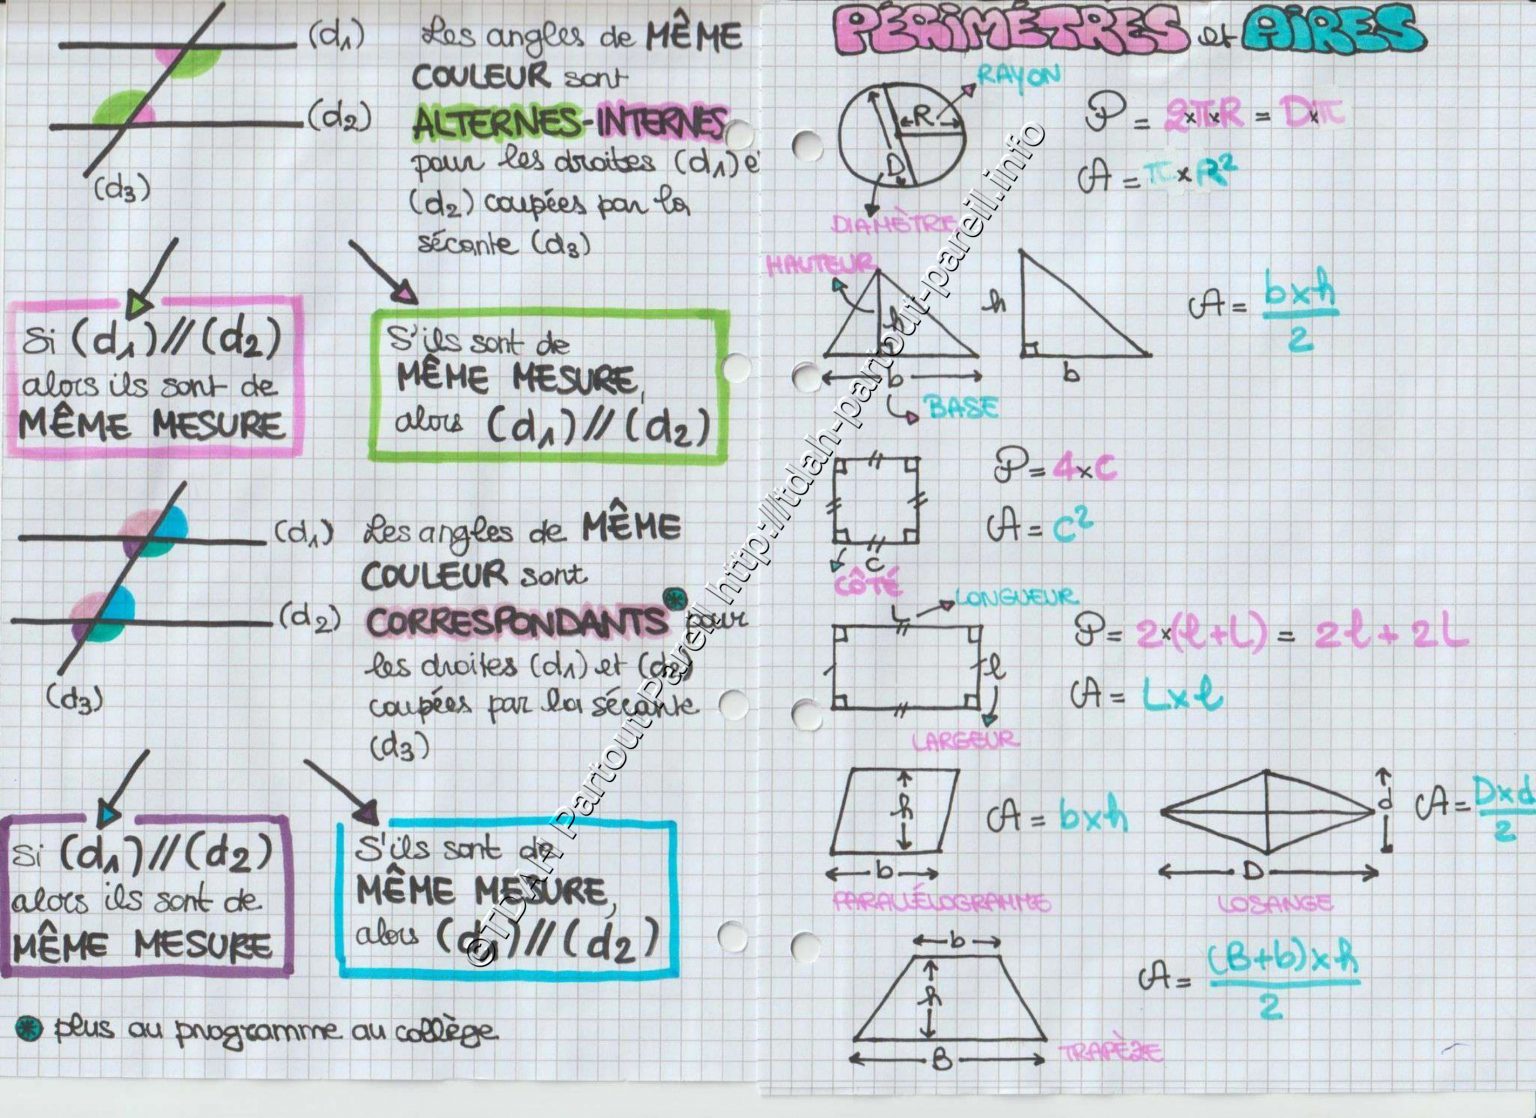 (d1)
(d2)
(d3)
Les angles de MÊME
COULEUR sont
ALTERNES-INTERNES
pour les droites (d1) e
(d2) coupées par la
sécante (d3)
Si (d1)//(d2)
alors ils sont de
MÊME MESURE
S'ils sont de
MÊME MESURE,
alors (d1)//(d2)
(d1)
(d2)
(d3)
Les angles de MÊME
COULEUR sont
CORRESPONDANTS* pour
les droites (d1) et (d2)
coupées par la sécante
(d3)
Si (d1)//(d2)
alors ils sont de
MÊME MESURE
S'ils sont de
MÊME MESURE,
alors (d1)//(d2)
* plus au programme au collège
PÉRIMÈTRES et AIRES
RAYON
R
D
DIAMÈTRE
P = 2×π×R = D×π
A = π×R²
HAUTEUR
h
b
BASE
h
b
A = b×h/2
C
CÔTÉ
P = 4×C
A = C²
L
LONGUEUR
l
LARGEUR
P = 2×(l+L) = 2l+2L
A = L×l
h
b
PARALLÉLOGRAMME
A = b×h
d
D
LOSANGE
A = D×d/2
b
h
B
TRAPÈZE
A = (B+b)×h/2
©TDAH Partout Pareil http://tdah-partout-pareil.info